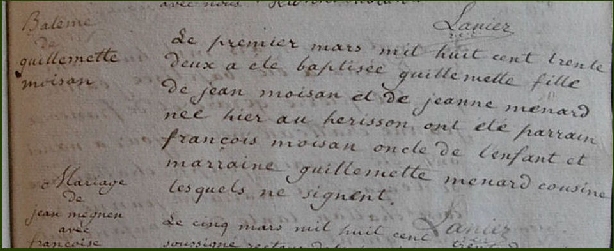 Lanier
Bateme
de
guillemette
moison
Le premier mars mil huit cent trente
deux a eté baptisée guillemette fille
de jean moison et de jeanne menard
née hier au herisson ont eté parrain
françois moison oncle de lenfant et
marraine guillemette menard cousine
lesquels ne signent.
Lanier
Mariage
de
jean megnen
avec
françoise
Le cinq mars mil huit cent
soussigné